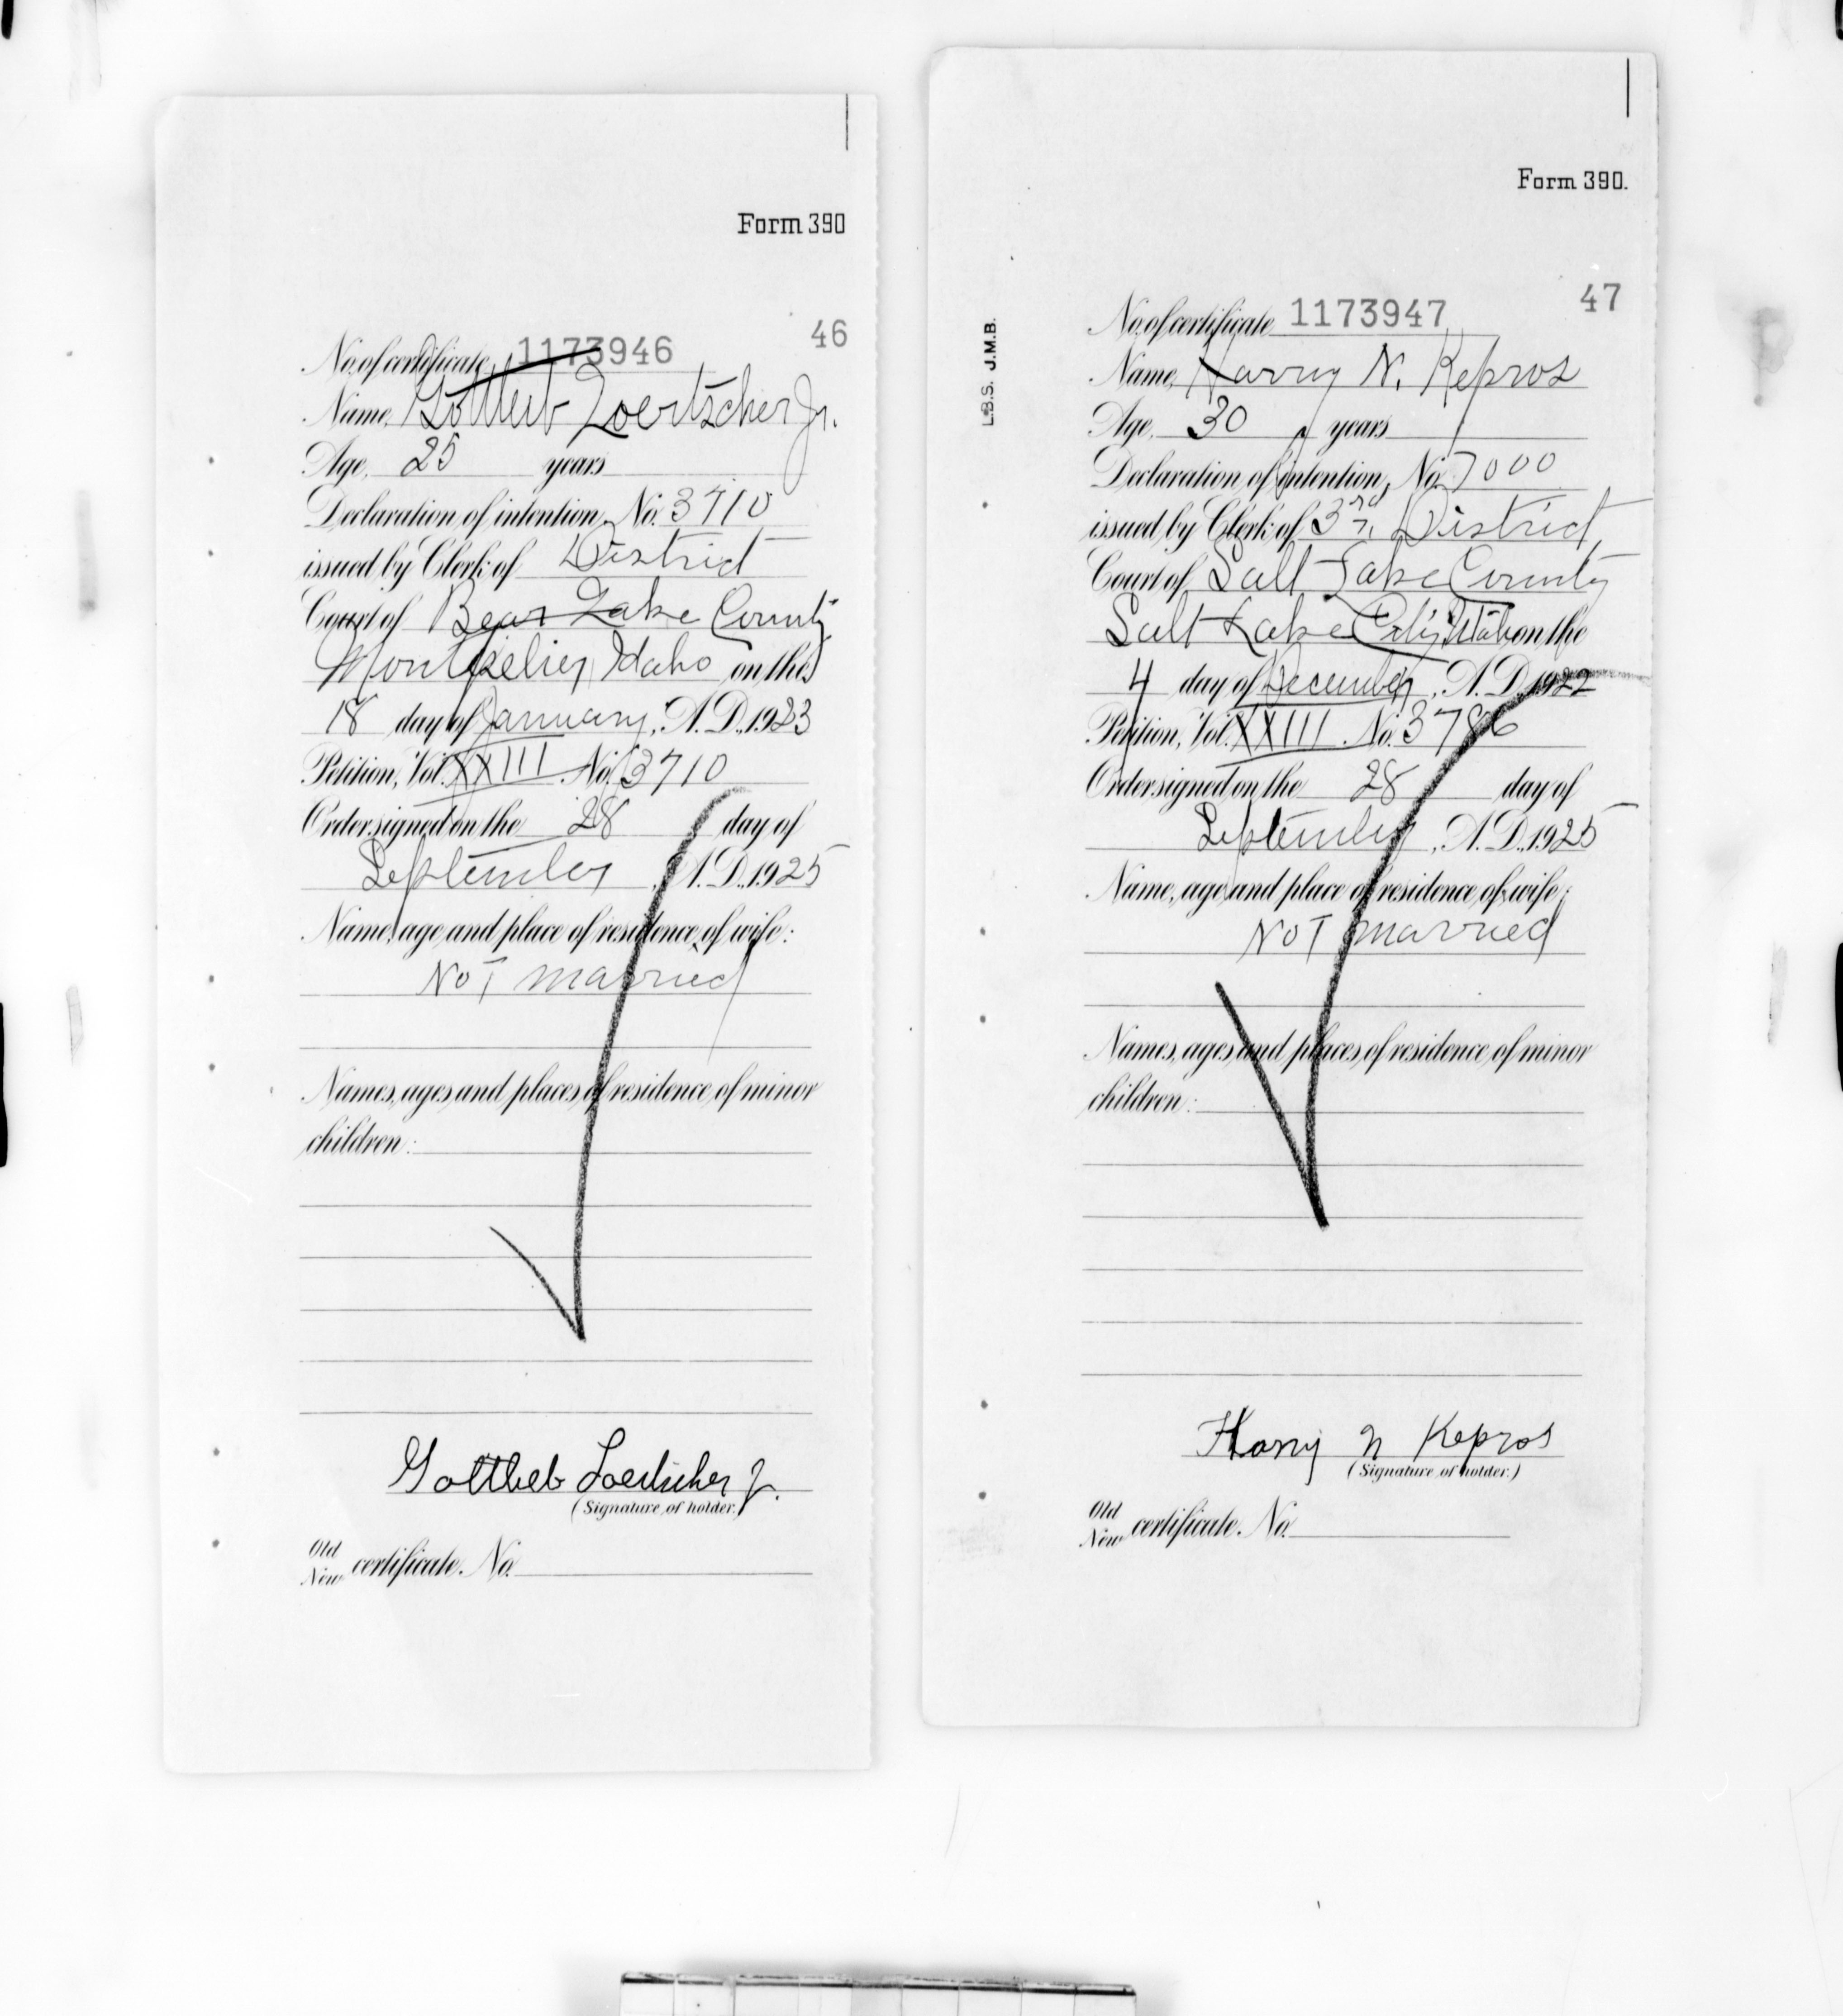 Form 390
46
No. of certificate 1173946
Name, Gottlieb Loertscher Jr.
Age, 25 years
Declaration of intention, No. 3710
issued by Clerk of District
Court of Bear Lake County
Montpelier, Idaho on the
18 day of January, A.D. 1923
Petition, Vol. XXIII No. 3710
Order signed on the 28 day of
September, A.D. 1925
Name, age, and place of residence of wife:
NOT married
Names, ages, and places of residence of minor
children:
Gottlieb Loertscher Jr.
(Signature of holder.)
Old
New certificate. No.
Form 390.
47
L.B.S. J.M.B.
No. of certificate 1173947
Name, Harry N. Kepros
Age, 30 years
Declaration of intention, No. 7000
issued by Clerk of 3rd District
Court of Salt Lake County
Salt Lake City, Utah on the
4 day of December, A.D. 1922
Petition, Vol. XXIII. No. 3786
Order signed on the 28 day of
September, A.D. 1925
Name, age, and place of residence of wife:
NOT married
Names, ages, and places of residence of minor
children:
Harry N Kepros
(Signature of holder.)
Old
New certificate. No.